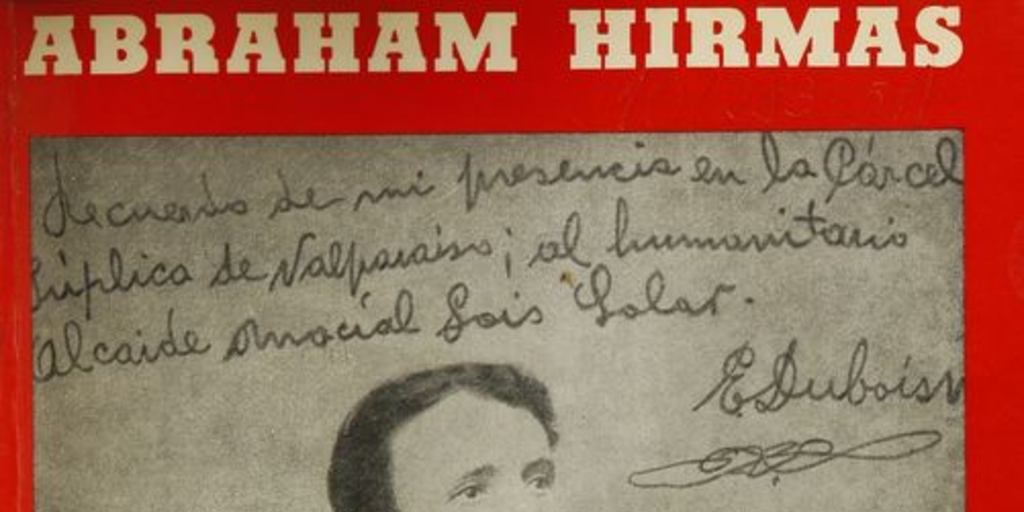 ABRAHAM HIRMAS
Recuerdo de mi presencia en la Cárcel
Púplica de Valparaiso; al humanitario
Alcaide Anacíal Gois Solar.
E Dubois